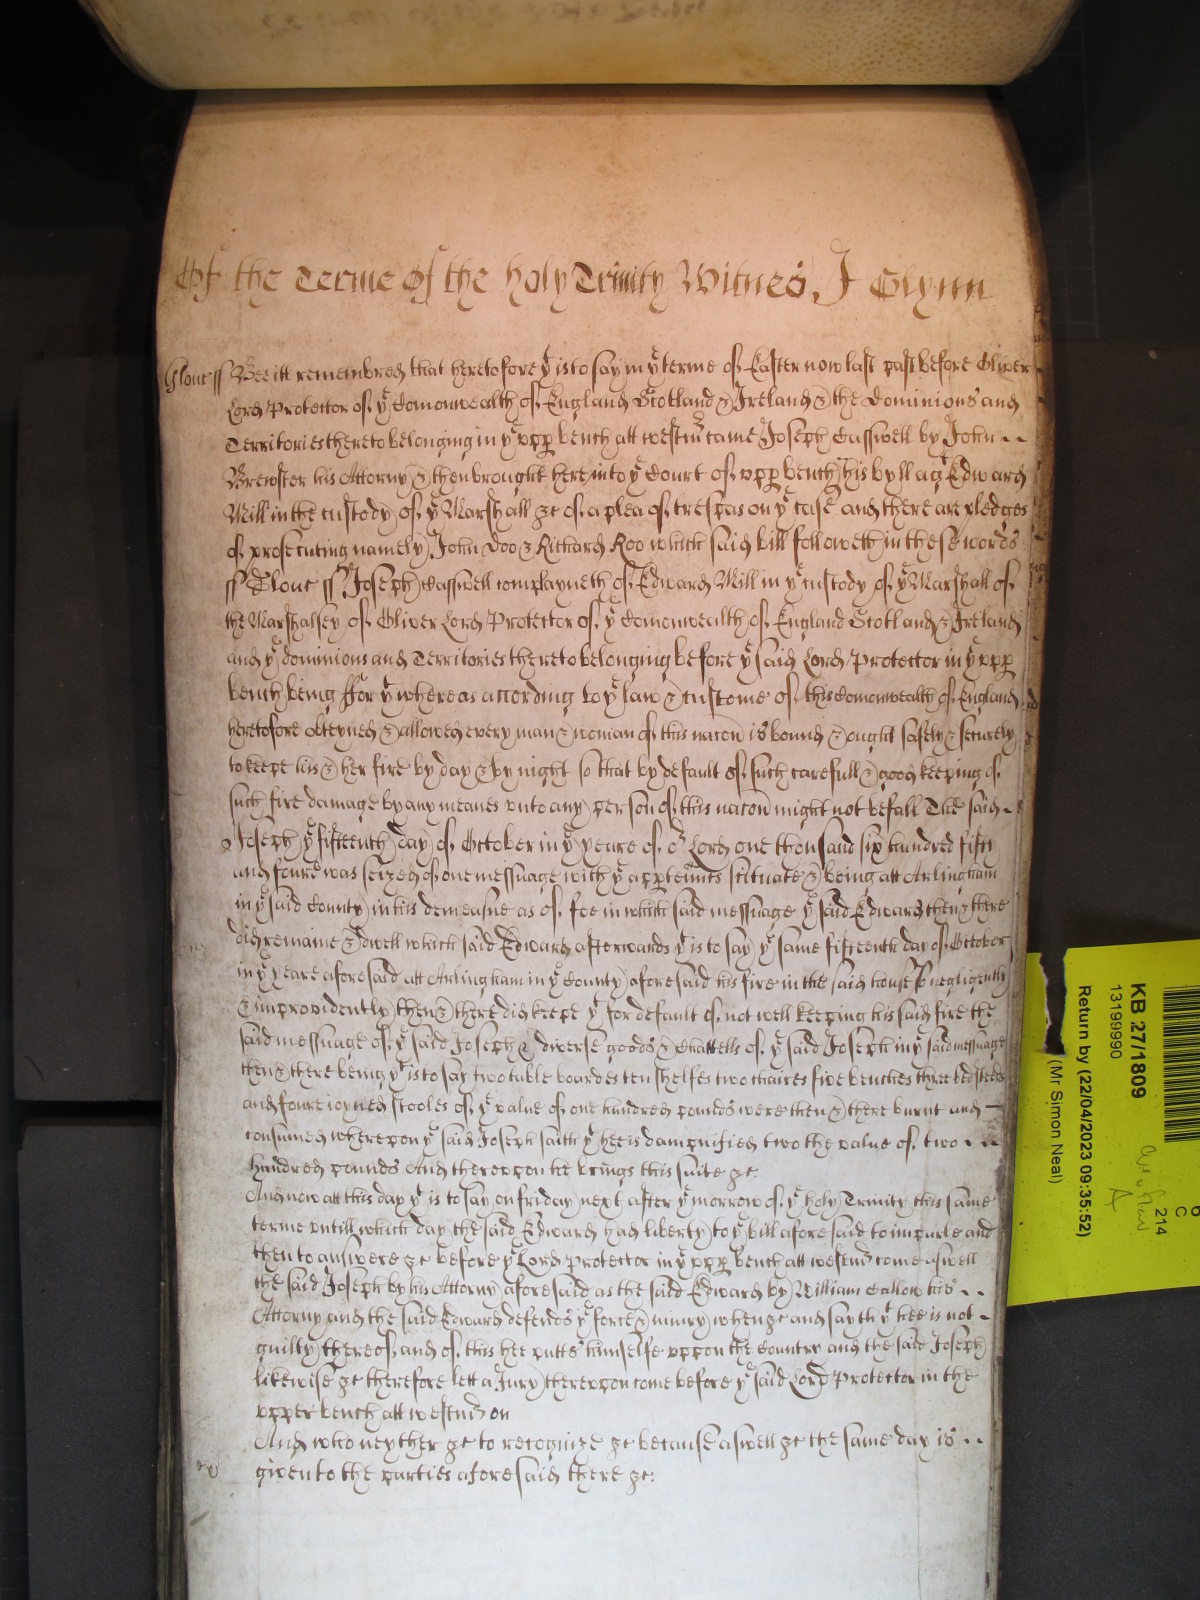 Of the Terme Of the Holy Trinity Witnes J Glynn
Glouc ss Bee itt remembred that heretofore yt is to say in ye terme of Easter now last past before Oliver
Lord Protector of ye Comonwealth of England Scotland & Ireland & the Dominions and
Territories thereto belonging in ye upp bench att westmr came Joseph Casswell by John
Brewster his Attorny & then brought here into ye Court of upp bench his byll agt Edward
Mill in the custody of ye Marshall &c of a plea of trespas on ye case and there are pledges
of prosecuting namely John Doo & Richard Roo which said bill followeth in these words
ss Glouc ss Joseph Casswell complayneth of Edward Mill in ye custody of ye Marshall of
the Marshalsey of Oliver Lord Protector of ye Comonwealth of England Scotland & Ireland
and ye dominions and Territories thereto belonging before ye said Lord Protector in ye upp
bench being ffor yt whereas according to ye law & custome of this Comonwealth of England
heretofore obteyned & allowed every man & woman of this nacon is bound & ought safely & securely
to keepe his & her fire by day & by night so that by default of such carefull & good keeping of
such fire damage by any meanes unto any person of this nacon might not befall The said
Joseph ye fifteenth day of October in ye yeare of or Lord one thousand six hundred fifty
and foure was seized of one messuage with ye apptennts scituate & being att Arlingham
in ye said County in his demeasne as of fee in which said messuage ye said Edward then & there
did remaine & dwell which said Edward afterwards yt is to say ye same fifteenth day of October
in ye yeare aforesaid att Arlingham in ye County aforesaid his fire in the said house so negligently
& improvidently then & there did keepe yt for default of not well keeping his said fire the
said messuage of ye said Joseph & diverse goods & Chattells of ye said Joseph in ye said messuage
then & there being yt is to say two table boardes ten shelfes two chaires five benches three bedsteeds
and foure ioyned stooles of ye value of one hundred pounds were then & there burnt and
consumed whereupon ye said Joseph saith yt hee is dampnified two the value of two
hundred pounds And thereupon he brings this suite &c
And now att this day yt is to say on friday next after ye morrow of ye holy Trinity this same
terme untill which day the said Edward had liberty to ye bill aforesaid to imparle and
then to answere &c before ye Lord Protector in ye upp bench att westmr come aswell
the said Joseph by his Attorny aforesaid as the said Edward by William Callow his
Attorny and the said Edward defends ye force & iniury when &c and sayth yt hee is not
guilty thereof and of this hee putts himselfe uppon the Country and the said Joseph
likewise &c therefore lett a Jury thereupon come before ye said Lord Protector in the
upper bench att westmr on
And who neyther &c to recognize &c because aswell &c the same day is
given to the parties aforesaid there &c:
KB 27/1809
13199990
Return by (22/04/2023 09:35:52)
(Mr Simon Neal)
C
214